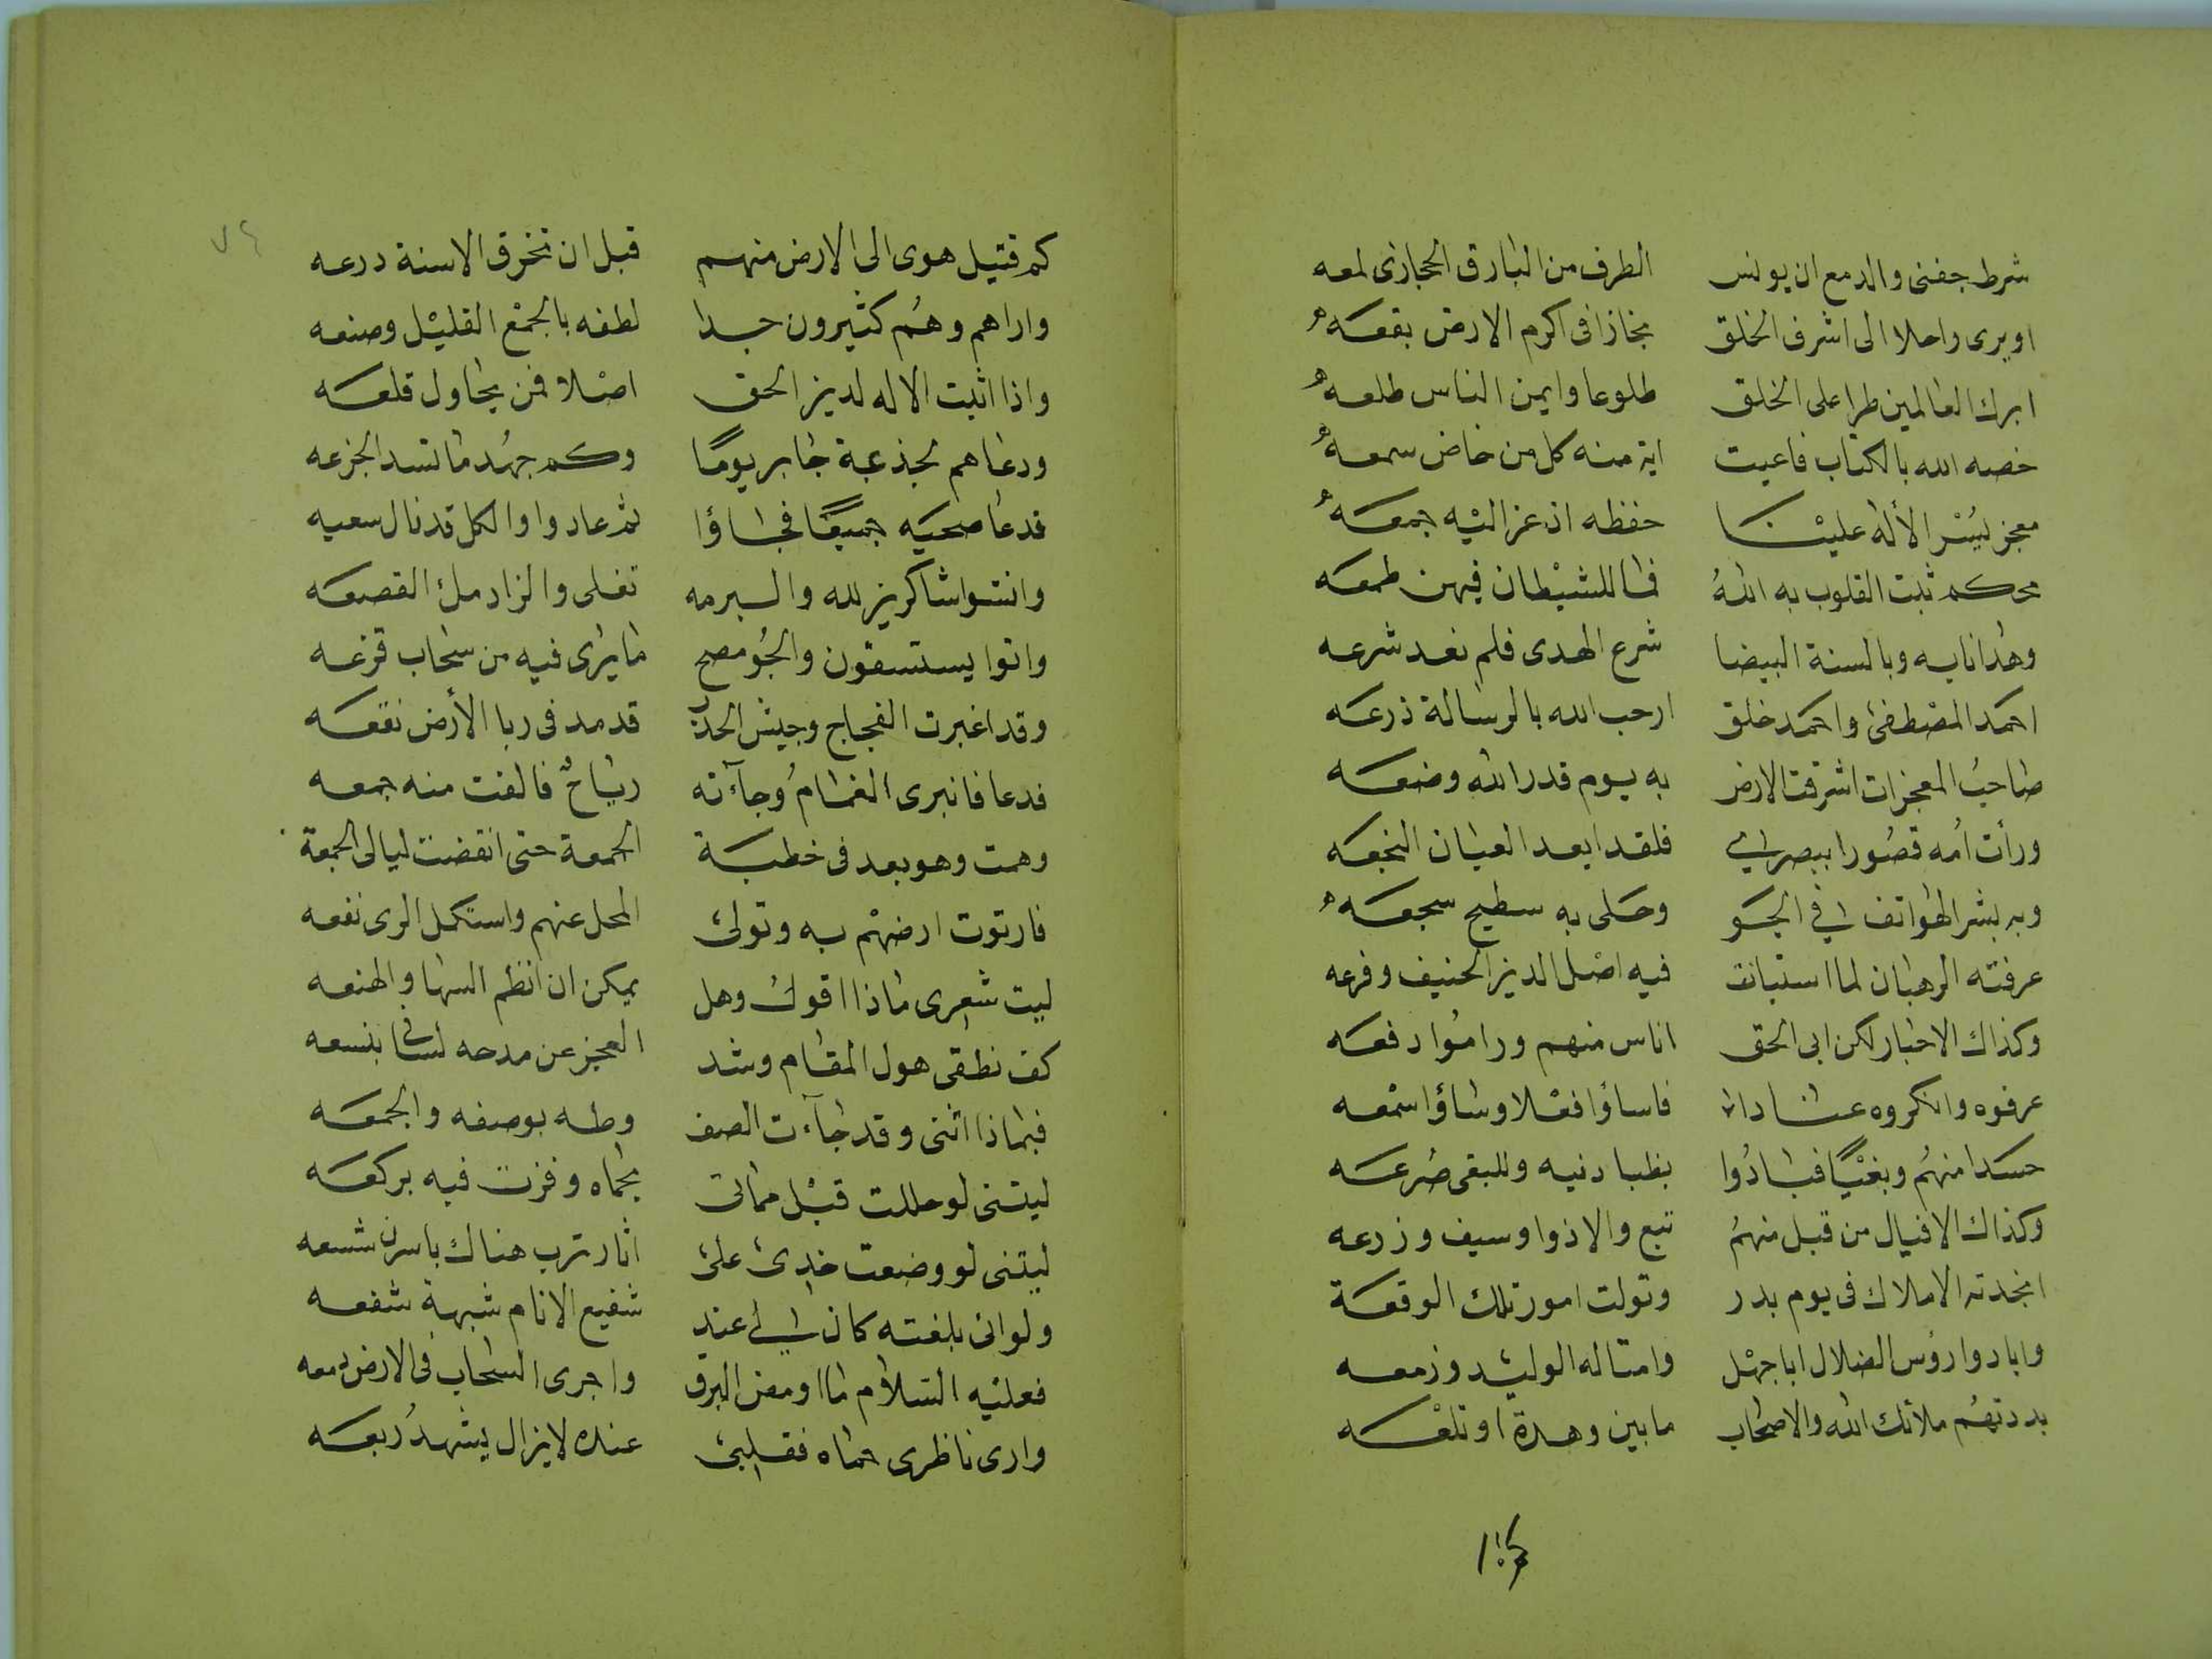 شرط جفنى والدمع ان يونس الطرف من البارق الحجازى لمعه
او يرى راحلا الى اشرف الخلق مجازا فى اكرم الارض بقعه
ابرك العالمين طرا على الخلق طلوعا وايمن الناس طلعه
خصه الله بالكتاب فاعيت اية منه كل من خاض سمعه
معجز يسر الأله علينا حفظه اذ عز اليه جمعه
محكم ثبت القلوب به الله فما للشيطان فيهن طمعه
وهدانا به وبالسنة البيضا شرع الهدى فلم نعد شرعه
احمد المصطفى واحمد خلق ارحب الله بالرسالة ذرعه
صاحب المعجزات اشرقت الارض به يوم قدر الله وضعه
ورأت امه قصورا ببصرى فلقد ابعد العيان النجعه
وبه بشر الهواتف فى الجو وحلى به سطيح سجعه
عرفته الرهبان لما استبانت فيه اصل الدين الحنيف وفرعه
وكذاك الاحبار لكن ابى الحق اناس منهم وراموا دفعه
عرفوه وانكروه عنادا فاساؤا فعلا وساؤا سمعه
حسدا منهم وبغيا فبادوا بظبا دنيه وللبغى صرعه
وكذاك الاقيال من قبل منهم تبع والاذوا وسيف وزرعه
انجدته الاملاك فى يوم بدر وتولت امور تلك الوقعة
وابادوا رؤس الضلال ابا جهل وامثاله الوليد وزمعه
بددتهم ملائك الله والاصحاب ما بين وهدة او تلعه
كم قتيل هوى الى الارض منهم قبل ان تخرق الاسنة درعه
واراهم وهم كثيرون جدا لطفه بالجمع القليل وصنعه
واذا اثبت الاله لدين الحق اصلا فمن يحاول قلعه
ودعاهم لجذعة جابر يوما وكم جهد ما تسد الجزعه
فدعا صحبه جميعا فجاؤا ثم عادوا والكل قد نال سعيه
وانثنوا شاكرين لله والبرمه تغلى والزاد ملئ القصعه
واتوا يستسقون والجو مصح ما يرى فيه من سحاب قزعه
وقد اغبرت الفجاج وجيش الجدب قد مد فى ربا الأرض نقعه
فدعا فانبرى الغمام وجآءته رياح فالفت منه جمعه
وهمت وهو بعد فى خطبة الجمعة حتى انقضت ليالى الجمعة
فارتوت ارضهم به وتولى المحل عنهم واستكمل الرى نفعه
ليت شعرى ماذا اقول وهل يمكن ان انظم السها والهنعه
كف نطقى هول المقام وشد العجز عن مدحه لسانى بنسعه
فبماذا اثنى وقد جآءت الصف وطه بوصفه والجمعه
ليتنى لو حللت قبل مماتى بحماه وفزت فيه بركعه
ليتنى لو وضعت خدى على اثار ترب هناك باسرن شسعه
ولو انى بلغته كان لى عند شفيع الانام شبهة شفعه
فعليه السلام ما اومض البرق واجرى السحاب فى الارض دمعه
وارى ناظرى حماه فقلبى عنده لا يزال يشهد ربعه
٧٤